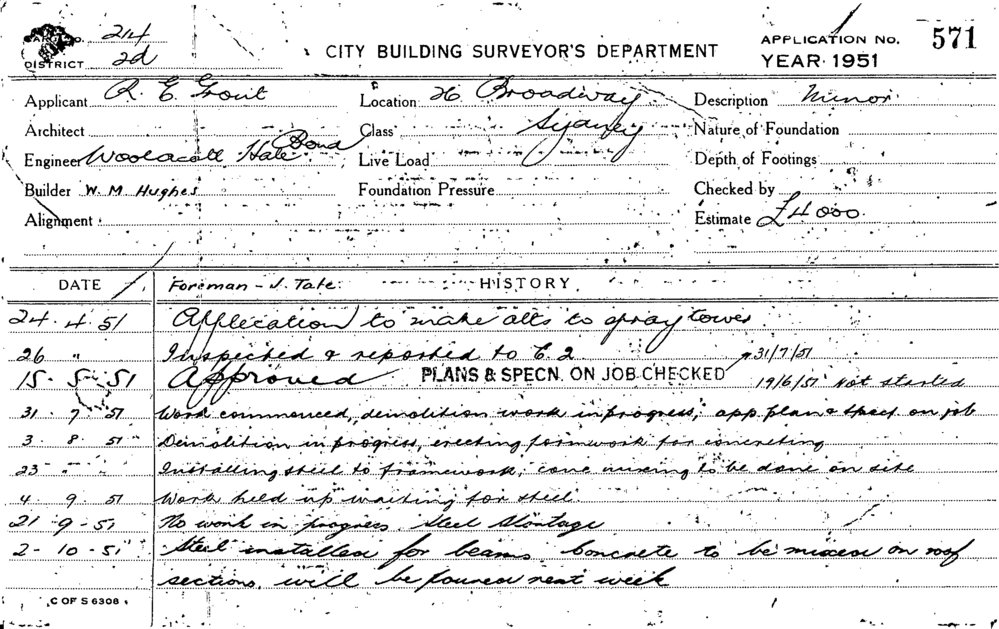 214
DISTRICT 2d
CITY BUILDING SURVEYOR'S DEPARTMENT
APPLICATION No. 571
YEAR 1951
Applicant R. E. Grout
Location 26 Broadway
Description Minor
Architect
Class Sydney
Nature of Foundation
Engineer Woolacott Hale Bond
Live Load
Depth of Footings
Builder W. M. Hughes
Foundation Pressure
Checked by
Alignment
Estimate £4000.
DATE
Foreman - J. Tate.
HISTORY
24. 4. 51 Application to make alts to spray tower
26 " Inspected & reported to C. 2 31/7/51
15. 5. 51 Approved PLANS & SPECN. ON JOB CHECKED 19/6/51 Not started
31. 7. 51 Work commenced, demolition work in progress, app. plan & spec on job
3. 8. 51 Demolition in progress, erecting formwork for concreting
23 " " Installing steel to framework, conc mixing to be done on site
4 9. 51 Work held up waiting for steel.
21-9-51 No work in progress Steel Shortage
2-10-51 Steel installed for beams Concrete to be mixed on roof
sections will be poured next week
C OF S 6308